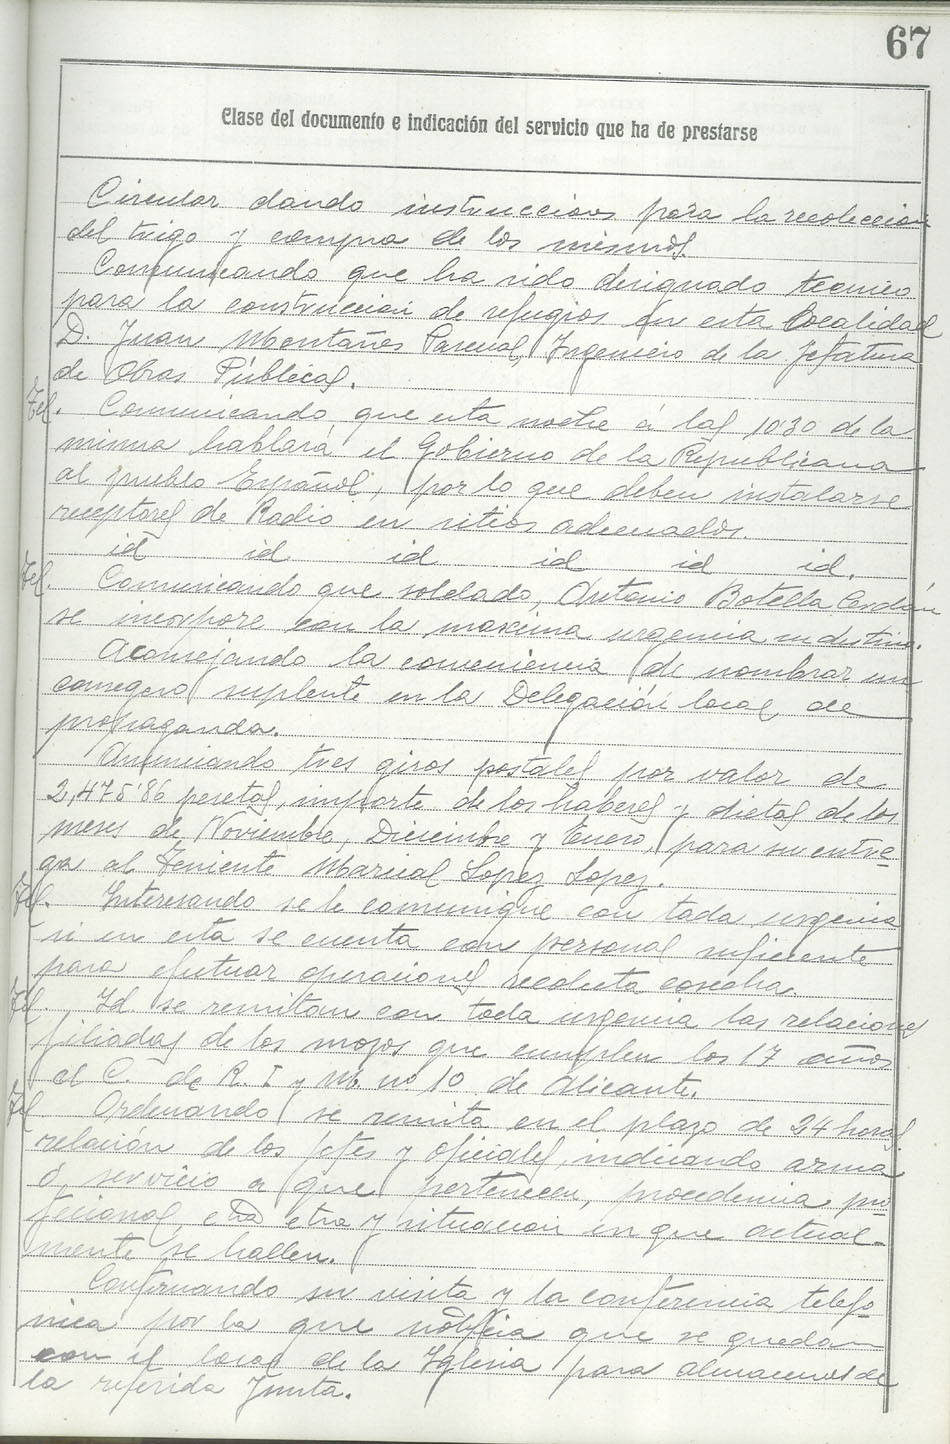 67
Clase del documento e indicación del servicio que ha de prestarse
Circular dando instrucciones para la recoleccion
del trigo y compra de los mismos.
Comunicando que ha sido designado tecnico
para la construccion de refugios en esta localidad
D. Juan Montañes Pascual, Ingeniero de la Jefatura
de Obras Públicas.
Tel. Comunicando que esta noche á las 10'30 de la
misma hablará el Gobierno de la Republicana
al pueblo Español, por lo que deben instalarse
receptores de Radio en sitios adecuados.
id id id id id id.
Tel. Comunicando que soldado, Antonio Botella
se incorpore con la maxima urgencia su destino.
Aconsejando la conveniencia de nombrar un
consegero suplente en la Delegación local de
propaganda.
Anunciando tres giros postales por valor de
2,475'86 pesetas, importe de los haberes y dietas de los
meses de Noviembre, Diciembre y Enero, para su entre-
ga al Teniente Marcial Lopez Lopez.
Tel. Interesando se le comunique con toda urgencia
si en esta se cuenta con personal suficiente
para efectuar operaciones recolecta cosecha.
Tel. Id. se remitan con toda urgencia las relaciones
filiadas de los mozos que cumplen los 17 años
al C. de R. I y M. nº 10 de Alicante.
Tel Ordenando se remita en el plazo de 24 horas
relación de los Jefes y Oficiales, indicando arma
ó servicio a que pertenecen, procedencia pro
fesional, etra y situacion en que actual-
mente se hallen.
Confirmando su visita y la conferencia telefo-
nica por la que notificia que se quedan
con el local de la Iglesia para almacenes de
la referida Junta.